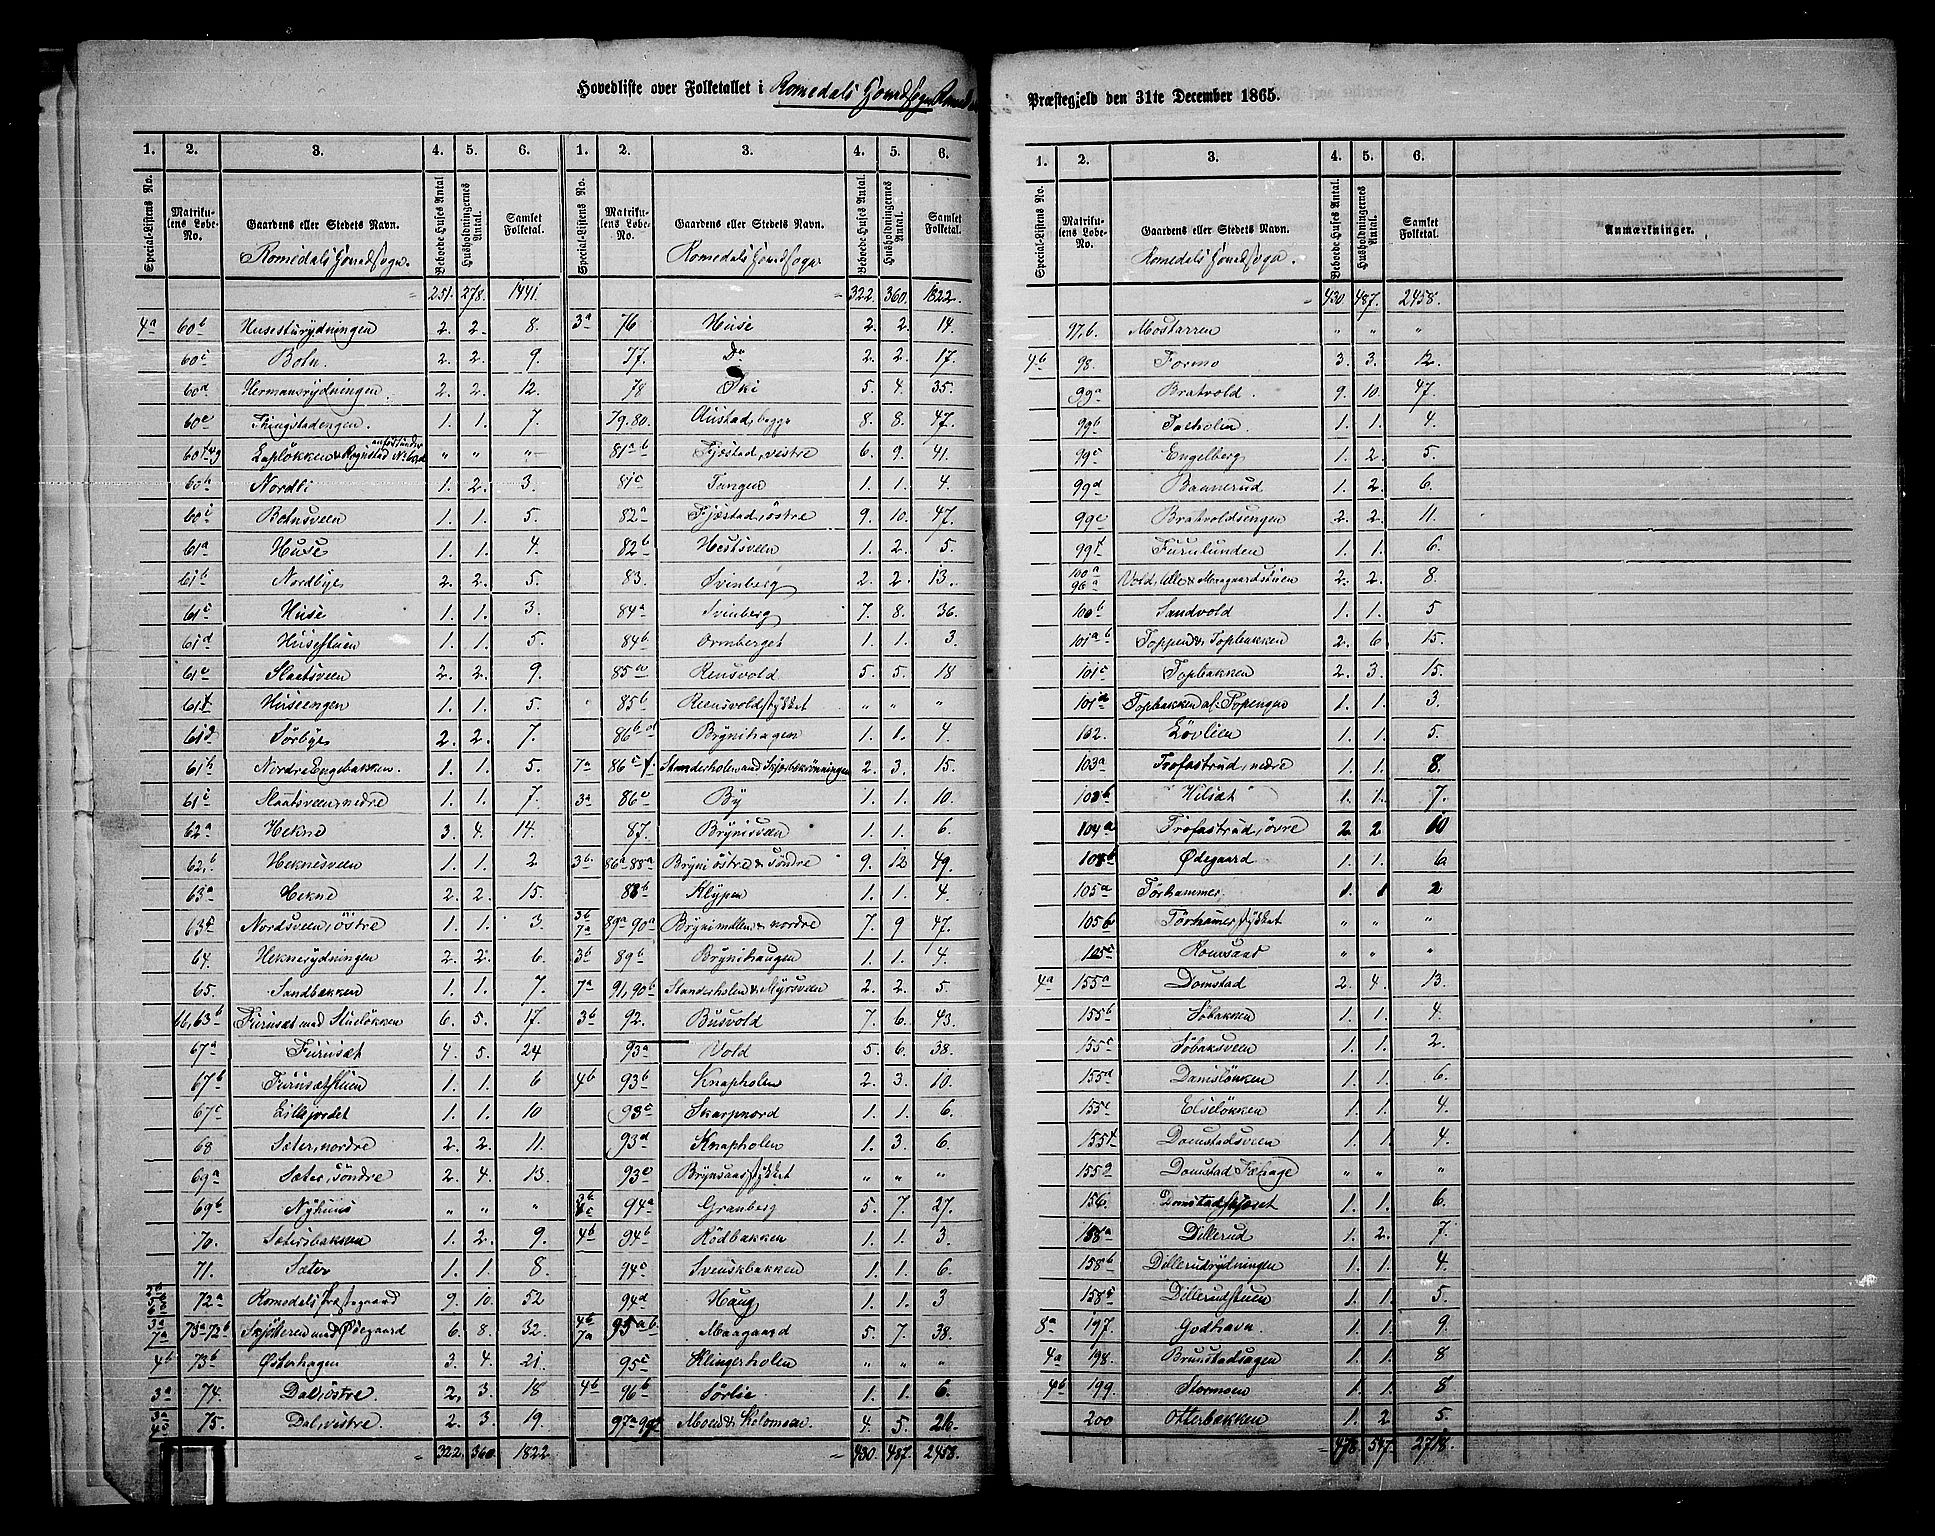 Hovedliste over Folketallet i Romedals Hovedsogn Romedals Præstegjeld den 31te December 1865.
1. 2. 3. 4. 5. 6.
Special-Listens No. Matrikulens Løbe-No. Gaardens eller Stedets Navn. Beboede Huses Antal. Husholdningernes Antal. Samlet Folketal.
Romedals Hovedsogn.
" 251. 278. 1441.
4a 60b Husesturydningen 2. 2. 8.
60c Botn 2. 2. 9.
60d Hermansrydningen 2. 2. 12.
60e Thingstadengen. 1. 1. 7.
60f&g Lapløkken & Rognstad anført under No 60d " " "
60h Nordli 1. 2. 3.
60i Botnsveen 1. 1. 5.
61a Huse 1. 1. 4.
61b Nordbye 2. 2. 5.
61c Huse 1. 1. 3.
61d Husestuen 1. 1. 5.
61e Slaatsveen 2. 2. 9.
61f Huseengen 1. 1. 5.
61g Sørbye 2. 2. 7.
61h Nordre Engebakken. 1. 1. 5.
61i Slaatsveen, nedre 1. 1. 7.
62a Hekne 3. 4. 14.
62b Heknesveen 1. 1. 2
63a Hekne 2. 2. 15.
63c Nordsveen, østre 1. 1. 3.
64. Heknerydningen 2. 2. 6.
65. Sandbakken 1. 1. 7.
66, 63b Furuset med Stueløkken 6. 5. 17.
67a Furuset 4. 5. 24
67b Furusetstuen 1. 1. 6
67c Lilleoedet 1. 1. 10
68 Sæter, nordre 2. 2. 11.
69a Sæter, søndre 2. 4. 13.
69b Nyhuus " " "
70. Sætersbakken 1. 2. 9.
71. Sæter 1. 1. 8.
72a Romedals Præstegaard 9. 10. 52
3a 7a 73a-72b Skjøtteren med Ødegaard 6. 8. 32.
4b 73b Østerhagen 3. 4. 21.
3a 74. Dal, østre. 2. 3. 18
3a 4a 75. Dal, vestre 2. 3. 19.
" 322. 360. 1822
1. 2. 3. 4. 5. 6.
Special-Listens No. Matrikulens Løbe-No. Gaardens eller Stedets Navn. Beboede Huses Antal. Husholdningernes Antal. Samlet Folketal.
Romedals Hovedsogn
" 322. 360. 1822.
3a 76 Huse 2. 2. 14.
77. Do 2. 2. 17.
78 Ski 5. 4. 35.
79. 80. Austad, begge 8. 8. 47.
81a b Fjæstad, vestre 6. 9. 41.
81c Tangen 1. 1. 4.
82a Fjæstad, østre 9. 10. 47.
82b Hestsveen 1. 2. 5.
83. Svinberg 2. 2. 13.
84a Svinberg 7. 8. 36.
84b Ormberget 1. 1. 3
85a Rensvold 5. 5. 18
85b Rensvoldstykket " " "
86b d Brynihagen 1. 1. 4
7a 86c f. Standerholen med Skjærbekrønningen 2. 3. 15.
3a 86e By 1. 1. 10.
87. Brynisveen 1. 1. 6.
3b. 86a 88a Bryni østre & søndre 9. 12 49.
88b Klypen 1. 1. 4.
3b 7a 89a-90a Brynimellem & nordre 7. 9 47.
3b 89b Brynihaugen 1. 1. 4
7a 91, 90b Standerholen & Myrsveen 2. 2. 5.
3b 92. Busvold 7. 6. 43.
93a Vold 5. 6. 38.
4b 93b Knapholen 2. 3. 10.
93c Skarpnord 1. 1. 6.
93d Knapholen 1. 3. 6.
93e Brynsaasstykket " " "
3b 4c 94a Granberg 5. 7. 27.
4b 94b Rødbakken 1. 1. 3.
94c Svenskbakken 1. 1. 6.
94d Haug 1. 1. 3
4b 7a 95a b. Maagaard 5. 7. 38.
95c Klingerholen " " "
4b 96b Sørlie 1. 1. 6.
97a Moen & Kolomoen. 4. 5. 26.
" 430. 487. 2458.
1. 2. 3. 4. 5. 6.
Special-Listens No. Matrikulens Løbe-No. Gaardens eller Stedets Navn. Beboede Huses Antal. Husholdningernes Antal. Samlet Folketal. Anmærkninger.
Romedals Hovedsogn.
" 430 487. 2458.
97, b. Mostarren " " "
4b 98. Formo 3. 3. 12.
99a Bratvold. 9. 10. 47.
99b Taeholen 1. 1. 4.
99c Engelberg 1. 2. 5.
99d Baanerud 1. 2. 6.
99e Bratvoldsengen 2. 2. 11.
99f Furulunden 1. 1. 6.
100a 96a Vold, lille & Maagaardstuen 2. 2. 8.
100b Sandvold 1. 1. 5
101a b Toppen & Topbakken 2. 6. 15.
101c Topbakken 2. 3. 15.
101d Topbakken af Topengen 1. 1. 3.
102. Løvlien 1. 1. 5.
103a Trofastrud, nedre 1. 1. 8.
103b "Hilset" 1. 1. 7.
104a Trofastrud, øvre 2 2 10
104b Ødegaard 1. 1. 6
105a Törhammer 1. 1 2
105b Törhamerstykket " " "
105c Romsaas " " "
4a 155a Domstad 2. 4. 13.
155b Søbakken 1. 1. 4.
155c Søbaksveen 1. 1. 2.
155d Damsløkken 1. 1. 6.
155e Elseløkken 1. 1. 4.
155f Domstadsveen 1. 1. 4.
155g Domstad Fæhage " " "
156. Domstadskjæret 1. 1. 6.
158a Dillerud 1. 2. 7.
158b Dillerudrydningen 1. 1. 4.
158c Dillerudstuen 1. 1. 5.
8a 197. Godhavn. 1. 1. 9.
4a 198. Brunstadsagen 1. 1. 8
4b 199. Stormoen 1. 1. 8
200 Otterbækken 1. 2 5.
478. 547. 2718.